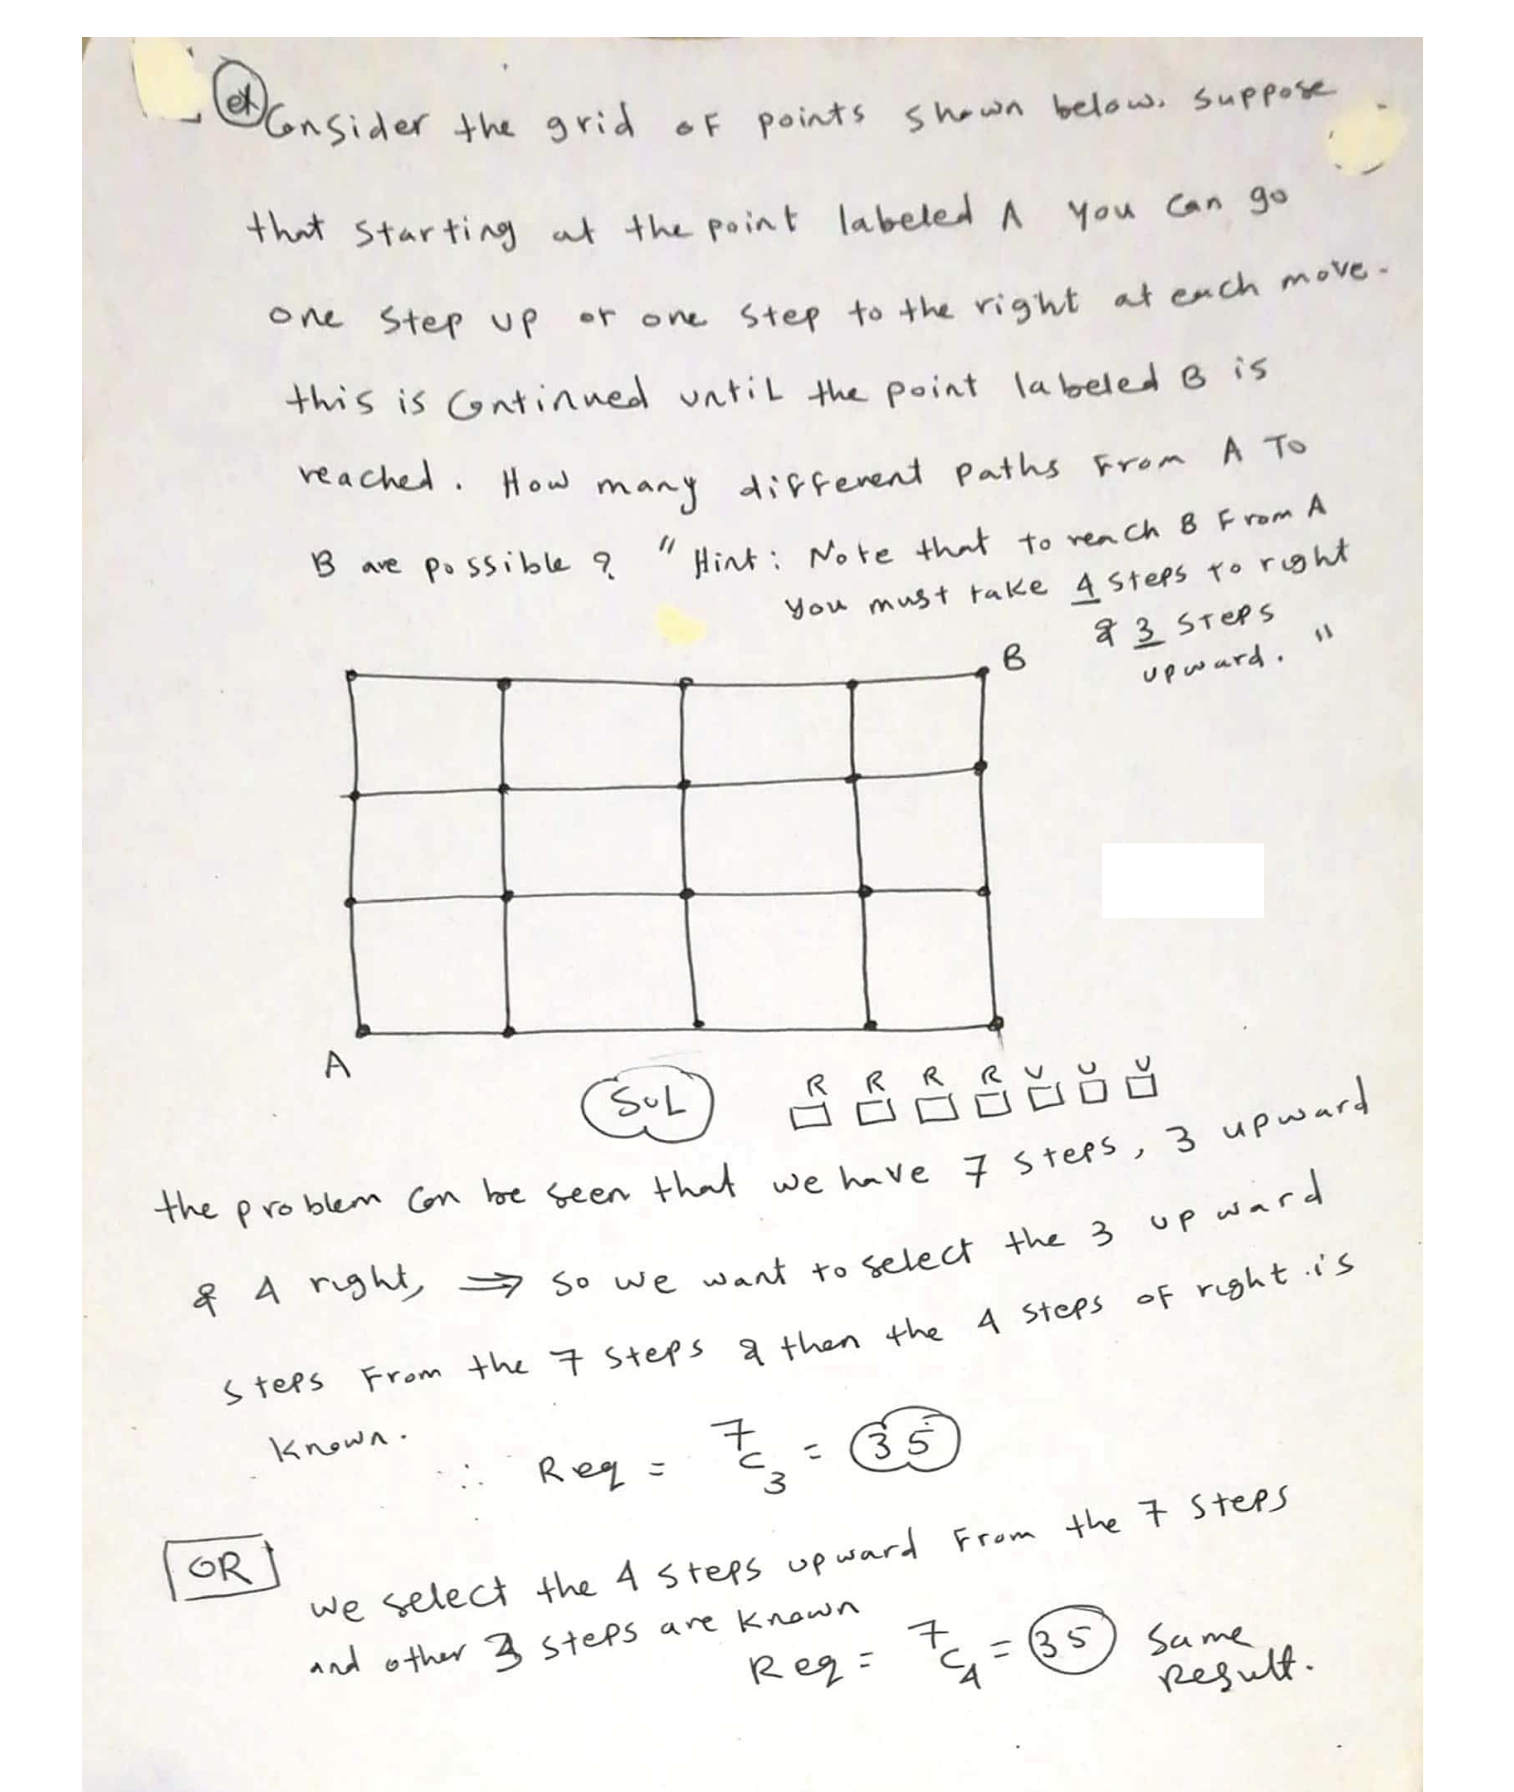 ex Consider the grid of points shown below. suppose
that starting at the point labeled A you can go
one step up or one step to the right at each move.
this is continued until the point labeled B is
reached. How many different paths From A To
B are possible ? " Hint : Note that to reach B From A
you must take 4 steps to right
& 3 steps
upward. "
B
A
SOL
R R R R U U U
the problem can be seen that we have 7 steps, 3 upward
& 4 right, ⇒ so we want to select the 3 upward
steps From the 7 steps & then the 4 steps of right is
known.
∴ Req = 7C3 = 35
OR
we select the 4 steps upward From the 7 steps
and other 3 steps are known
Req = 7C4 = 35 same
Result.